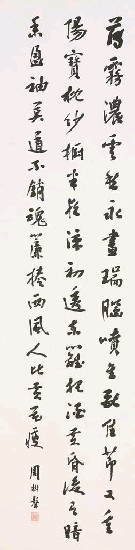 薄霧濃雲愁永晝瑞腦噴金獸佳節又重
陽寶枕紗櫥半夜涼初透東籬把酒黃昏後有暗
香盈袖莫道不銷魂簾捲西風人比黃花瘦
周